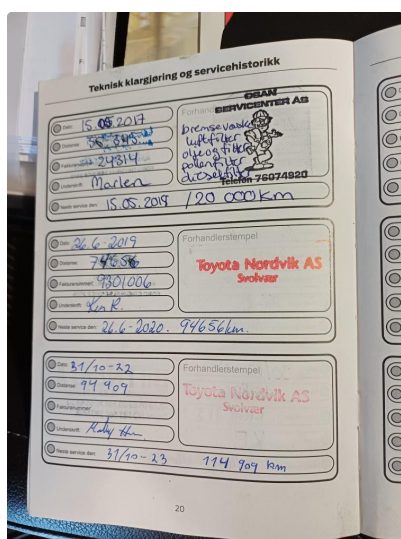 Teknisk klargjøring og servicehistorikk
Dato: 15.05.2017
Distanse:
Fakturanummer: 24314
Underskrift: Marlen
Neste service den: 15.05.2019 /20 000km
Forhandlerstempel
OSAN
SERVICENTER AS
bremsevæske
luftfilter
olje og filter
pollenfilter
dieselfilter
Telefon 76074920
Dato: 26.6-2019
Distanse: 74656
Fakturanummer: 9301006.
Underskrift: Ken R.
Neste service den: 26.6-2020. 94656km.
Forhandlerstempel
Toyota Nordvik AS
Svolvær
Dato: 31/10-22
Distanse: 94 909
Fakturanummer:
Underskrift:
Neste service den: 31/10-23 114 909 km
Forhandlerstempel
Toyota Nordvik AS
Svolvær
20